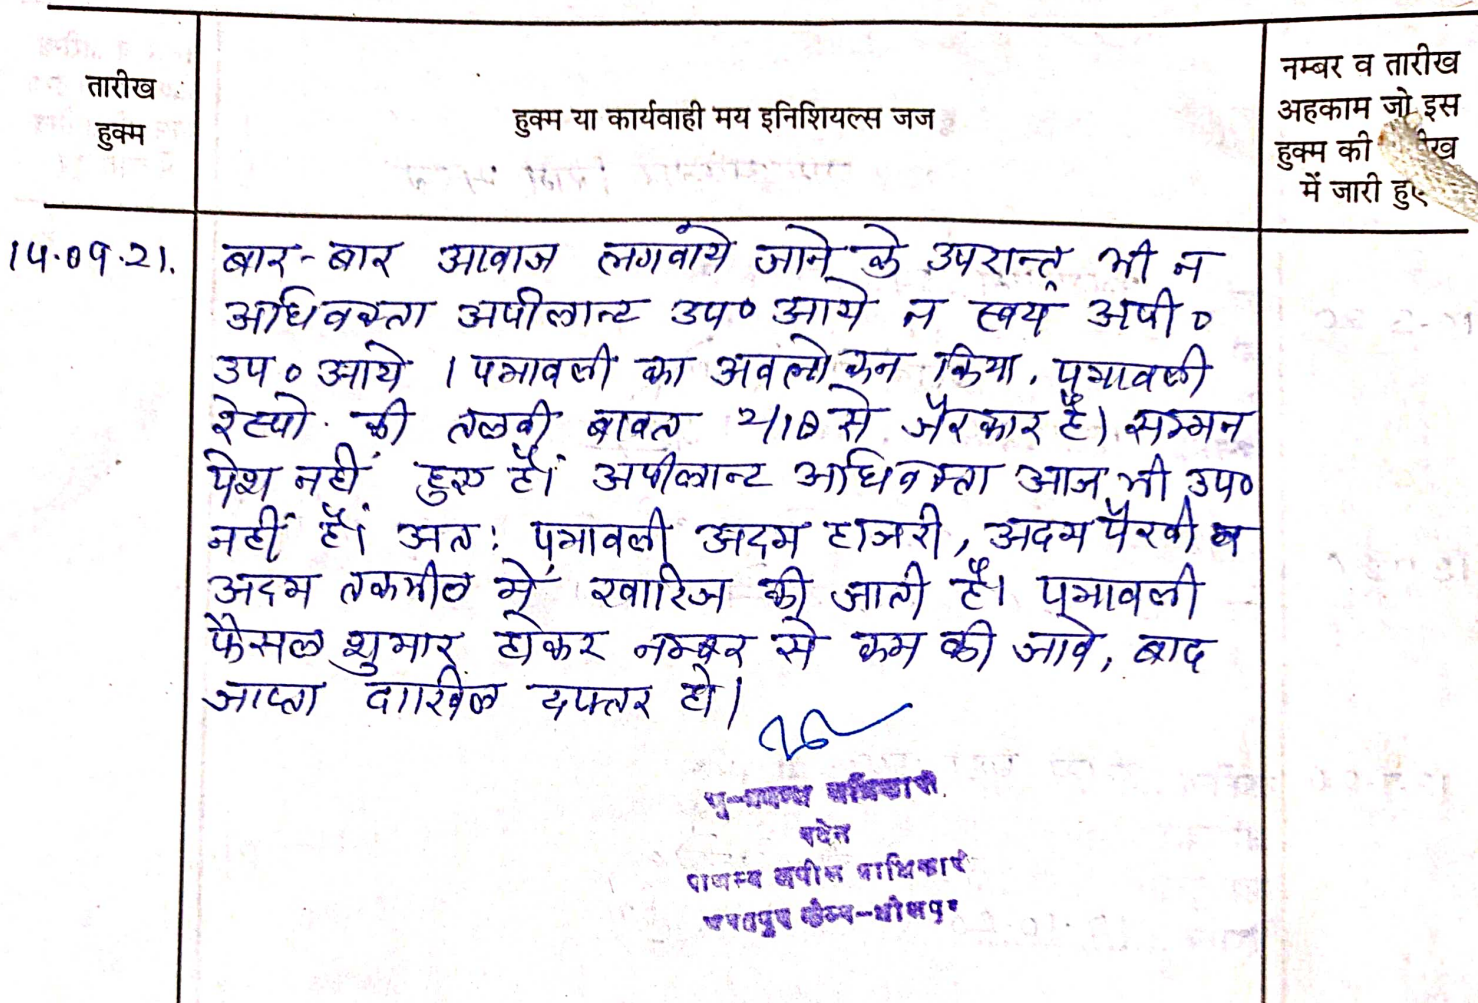 तारीख
हुक्म
हुक्म या कार्यवाही मय इनिशियल्स जज
नम्बर व तारीख
अहकाम जो इस
हुक्म की
में जारी हुए
14.09.21.
बार-बार आवाज लगवाये जाने के उपरान्त भी न
अधिवक्ता अपीलान्ट उप० आये न स्वयं अपी०
उप० आये । पत्रावली का अवलोकन किया. पत्रावली
रेस्पो. की तलबी बाबत 2018 से जैरकार है। सम्मन
पेश नहीं हुए हैं। अपीलान्ट अधिवक्ता आज भी उप०
नहीं हैं। अत: पत्रावली अदम हाजरी, अदम पैरवी व
अदम तकमील में खारिज की जाती है। पत्रावली
फैसल शुमार होकर नम्बर से कम की जावे, बाद
जाप्ता दाखिल दफ्तर हो।
भू-प्रबन्ध अधिकारी
पदेन
राजस्व अपील प्राधिकारी
भरतपुर कैम्प-धौलपुर